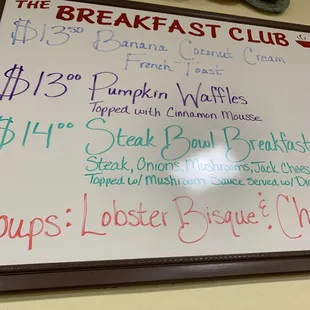 THE BREAKFAST CLUB
$13.50 Banana Coconut Cream
French Toast
$13.00 Pumpkin Waffles
Topped with Cinnamon Mousse
$14.00 Steak Bowl Breakfast
Steak, Onions, Mushrooms, Jack Chees
Topped w/ Mushroom Sauce served w/ Di
oups: Lobster Bisque & Ch